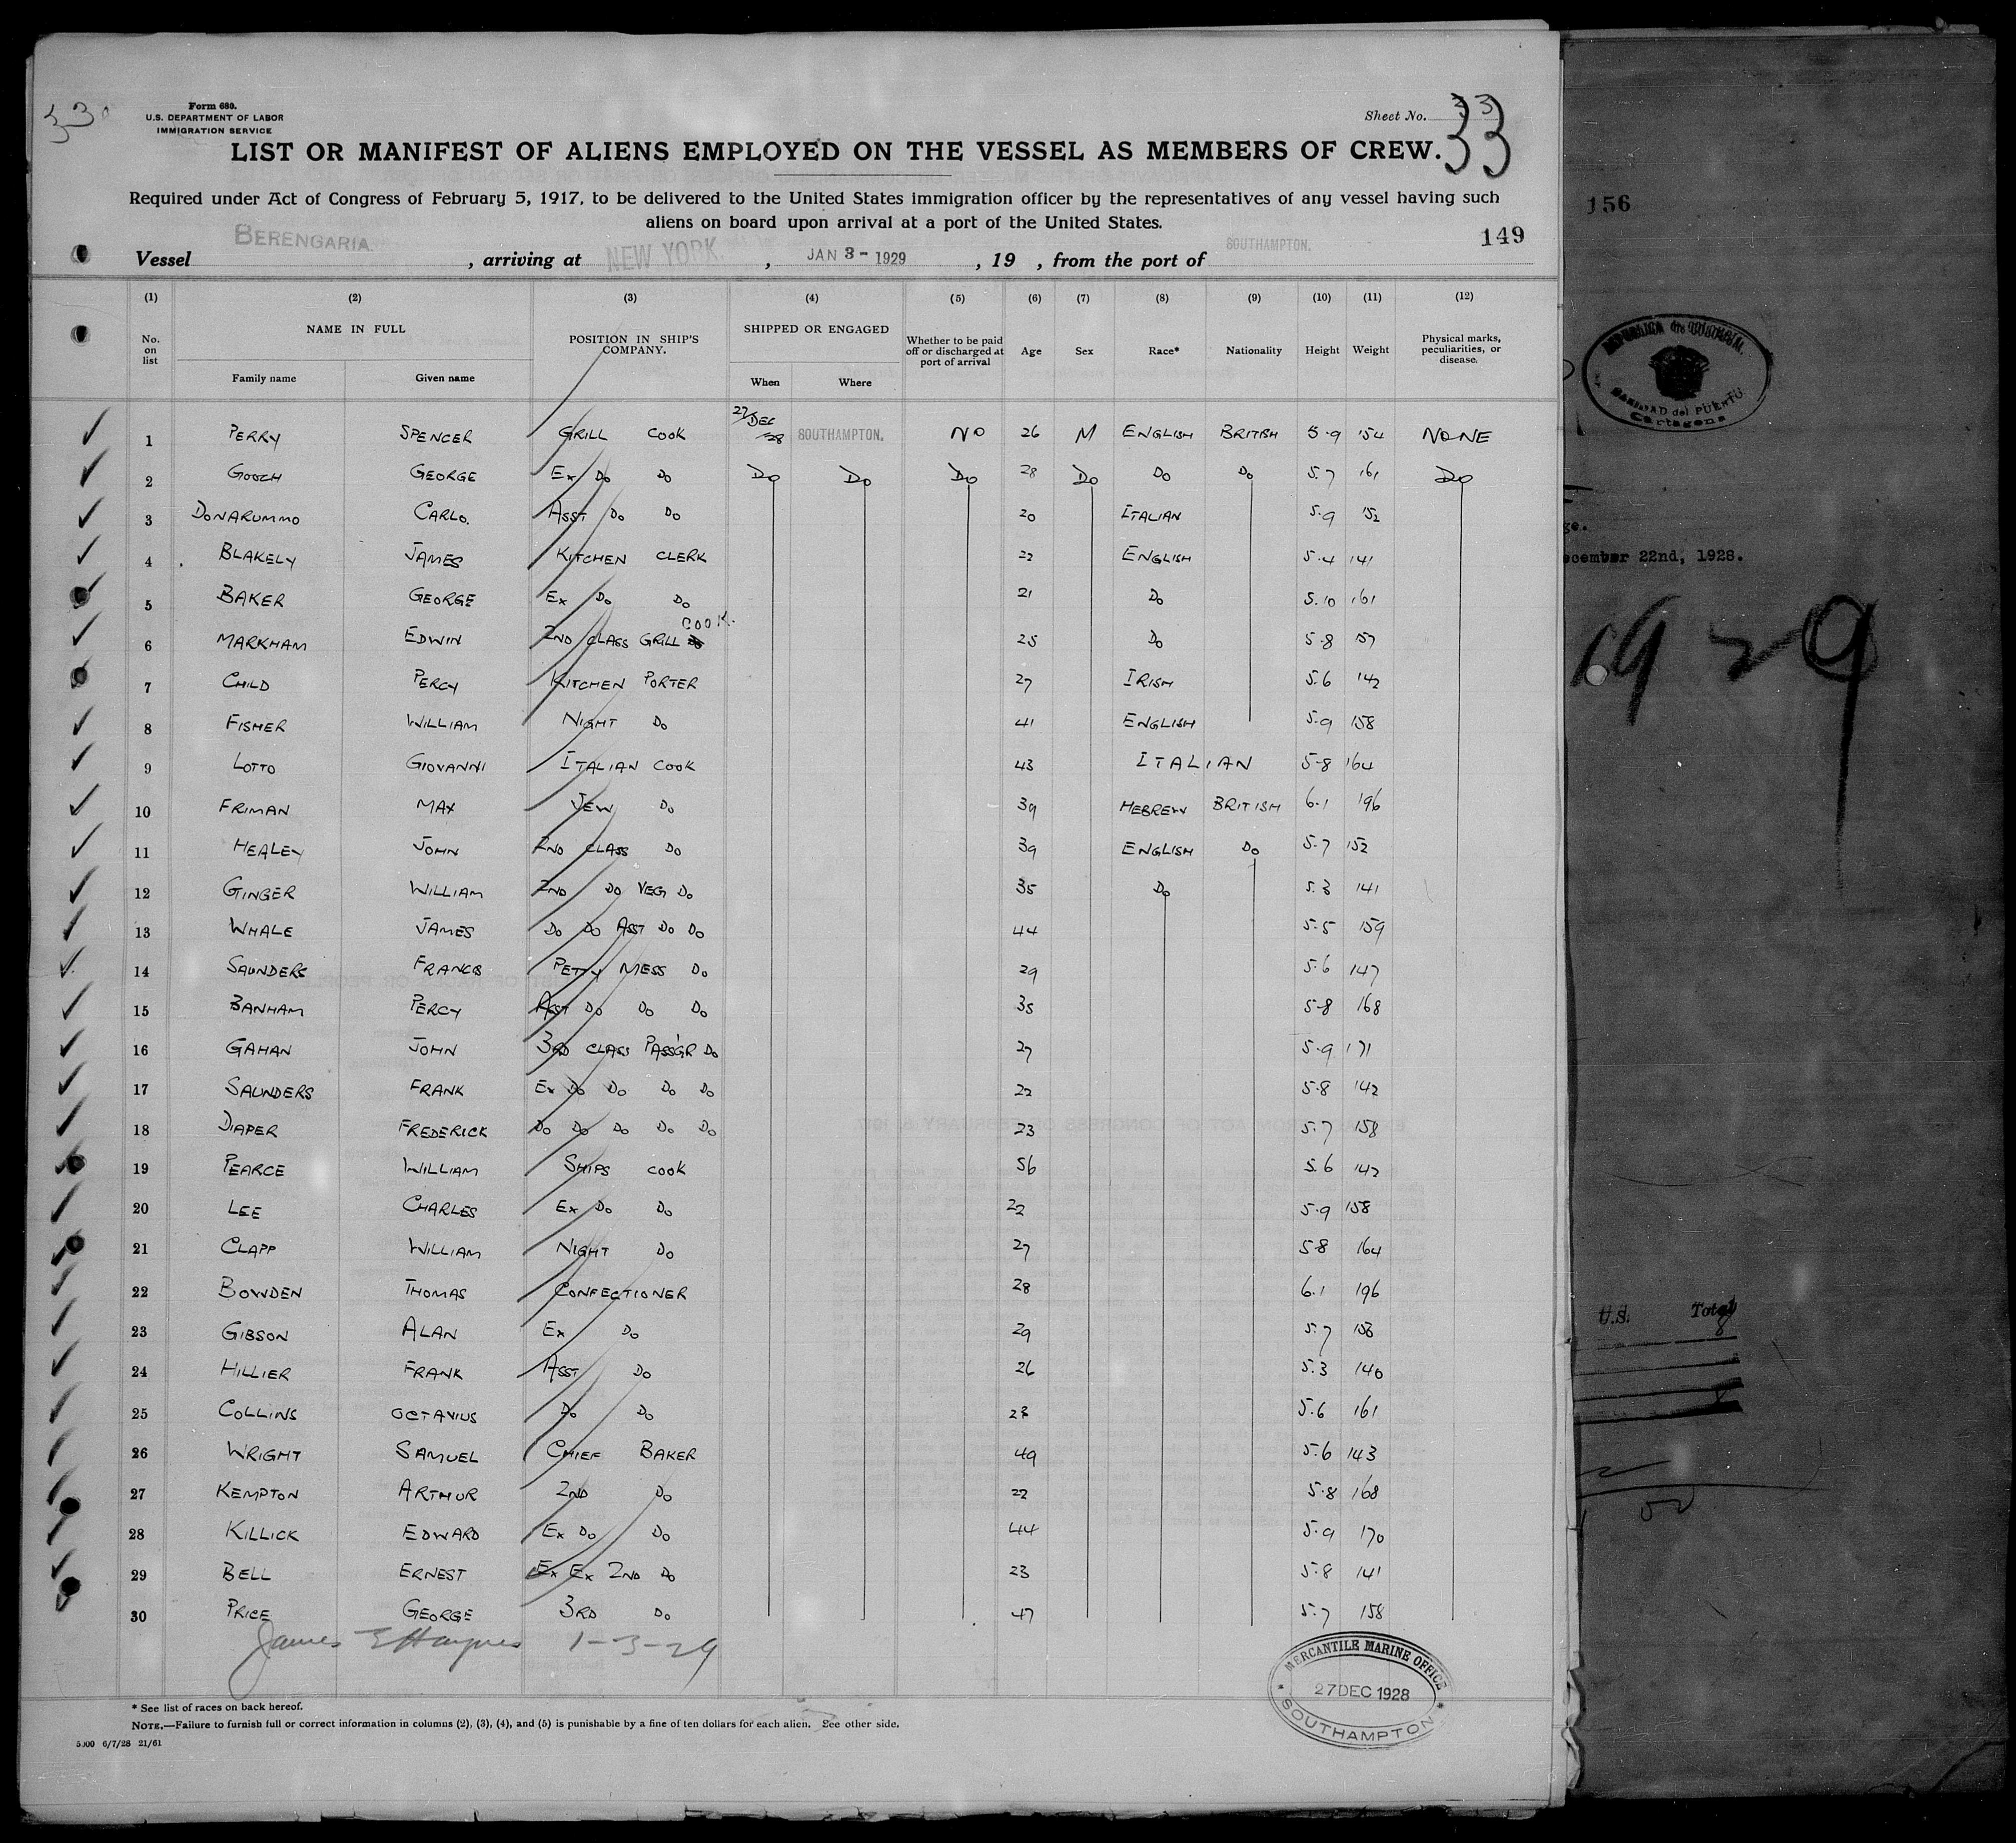 33
Form 680.
U.S. DEPARTMENT OF LABOR
IMMIGRATION SERVICE
Sheet No. 33
33
LIST OR MANIFEST OF ALIENS EMPLOYED ON THE VESSEL AS MEMBERS OF CREW.
Required under Act of Congress of February 5, 1917, to be delivered to the United States immigration officer by the representatives of any vessel having such
aliens on board upon arrival at a port of the United States.
149
Vessel BERENGARIA. , arriving at NEW YORK. , JAN 3 - 1929 , 19 , from the port of SOUTHAMPTON.
(1) (2) (3) (4) (5) (6) (7) (8) (9) (10) (11) (12)
No. on list NAME IN FULL POSITION IN SHIP'S COMPANY. SHIPPED OR ENGAGED Whether to be paid off or discharged at port of arrival Age Sex Race* Nationality Height Weight Physical marks, peculiarities, or disease.
Family name Given name When Where
1 PERRY SPENCER GRILL COOK 27/DEC/28 SOUTHAMPTON. NO 26 M ENGLISH BRITISH 5.9 154 NONE
2 GOOCH GEORGE EX DO DO DO DO DO 28 DO DO DO 5.7 161 DO
3 DONARUMMO CARLO. ASST DO DO 20 ITALIAN 5.9 152
4 BLAKELY JAMES KITCHEN CLERK 22 ENGLISH 5.4 141
5 BAKER GEORGE EX DO DO 21 DO 5.10 161
6 MARKHAM EDWIN 2ND CLASS GRILL COOK. 25 DO 5.8 157
7 CHILD PERCY KITCHEN PORTER 27 IRISH 5.6 142
8 FISHER WILLIAM NIGHT DO 41 ENGLISH 5.9 158
9 LOTTO GIOVANNI ITALIAN COOK 43 ITALIAN 5-8 164
10 FRIMAN MAX JEW DO 39 HEBREW BRITISH 6.1 196
11 HEALEY JOHN 2ND CLASS DO 39 ENGLISH DO 5.7 152
12 GINGER WILLIAM 2ND DO VEG DO 35 DO 5.3 141
13 WHALE JAMES DO DO ASST DO DO 44 5.5 159
14 SAUNDERS FRANCIS PETTY MESS DO 29 5.6 147
15 BANHAM PERCY ASST DO DO DO 35 5-8 168
16 GAHAN JOHN 3RD CLASS PASS'GR DO 27 5.9 171
17 SAUNDERS FRANK EX DO DO DO DO 22 5.8 142
18 DIAPER FREDERICK DO DO DO DO DO 23 5.7 158
19 PEARCE WILLIAM SHIPS COOK 56 5.6 142
20 LEE CHARLES EX DO DO 22 5.9 158
21 CLAPP WILLIAM NIGHT DO 27 5.8 164
22 BOWDEN THOMAS CONFECTIONER 28 6.1 196
23 GIBSON ALAN EX DO 29 5.7 153
24 HILLIER FRANK ASST DO 26 5.3 140
25 COLLINS OCTAVIUS DO DO 23 5.6 161
26 WRIGHT SAMUEL CHIEF BAKER 49 5.6 143
27 KEMPTON ARTHUR 2ND DO 22 5.8 168
28 KILLICK EDWARD EX DO DO 44 5.9 170
29 BELL ERNEST EX EX 2ND DO 23 5.8 141
30 PRICE GEORGE 3RD DO 47 5.7 158
James E Haynes 1-3-29
MERCANTILE MARINE OFFICE
27 DEC 1928
SOUTHAMPTON
* See list of races on back hereof.
NOTE.—Failure to furnish full or correct information in columns (2), (3), (4), and (5) is punishable by a fine of ten dollars for each alien. See other side.
5000 6/7/28 21/61
156
SANIDAD del PUERTO
Cartagena
ge.
ecember 22nd, 1928.
1929
U.S. Total